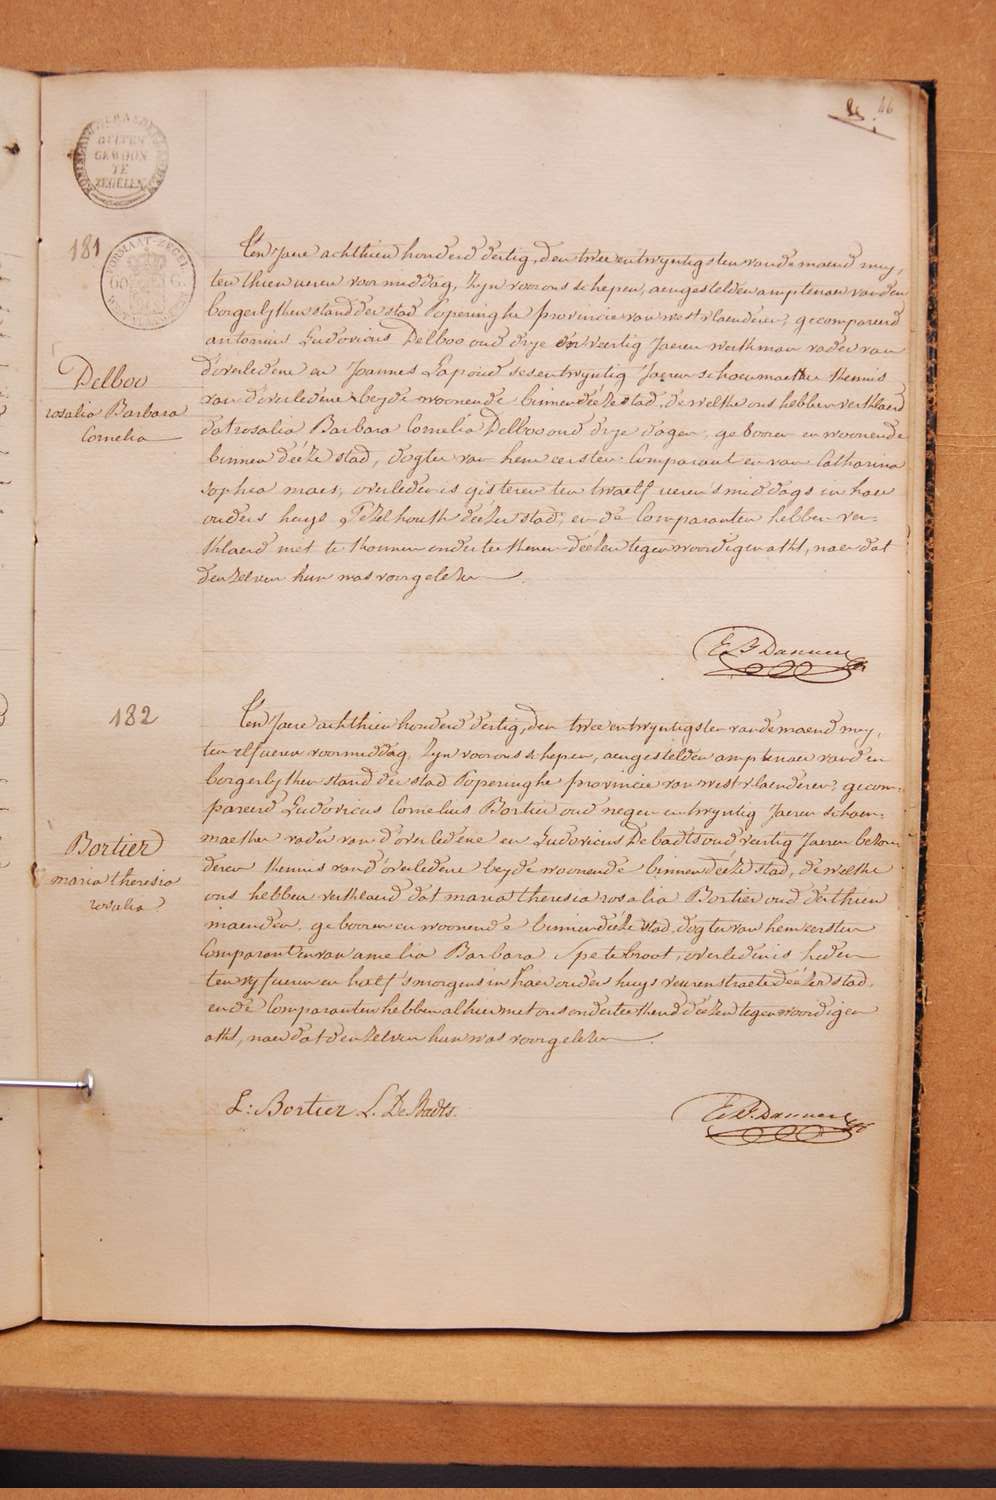 46
BUITEN
GEWOON
TE
ZEGELEN
181
FORMAAT-ZEGEL
Delboo
rosalia Barbara
Cornelia
Ten Jaere achthien honderd dertig, den twee en twyntigsten van de maend mey,
ten thien ueren voormiddag, zyn voor ons schepen, aengestelden amptenaer van den
borgerlyken stand der stad Poperinghe provincie van west vlaenderen, gecompareerd
antonius Ludovicus Delboo oud drye en veertig Jaeren werkman vader van
d'overledene en Joannes Lapoud sesentwyntig Jaeren schoenmaeker kennis
van d'overledene beyde woonende binnen deéze stad, de welke ons hebben verklaerd
dat rosalia Barbara Cornelia Delboo oud drye dagen, geboren en woonende
binnen deéze stad, dogter van hem eersten Comparant en van Catharina
sophia maes, overleden is gisteren ten twaelf ueren s'middags in haer
ouders huys deézer stad, en de Comparanten hebben ver-
klaerd niet te konnen onderteekenen deézen tegenwoordigen akt, naer dat
den zelven hun was voorgelezen
182
Bortier
maria theresia
rosalia
Ten Jaere achthien honderd dertig, den twee en twyntigsten van de maend mey,
ten elf ueren voormiddag, zyn voor ons schepen, aengestelden amptenaer van den
borgerlyken stand der stad Poperinghe provincie van west vlaenderen, gecom-
pareerd Ludovicus Cornelius Bortier oud negen en twyntig Jaeren schoen-
maeker vader van d'overledene en Ludovicus De badts oud veertig Jaeren
kennis van d'overledene beyde woonende binnen deéze stad, de welke
ons hebben verklaerd dat maria theresia rosalia Bortier oud derthien
maenden, geboren en woonende binnen deéze stad, dogter van hem eersten
Comparant en van amelia Barbara Spetebroot, overleden is heden
ten vyf ueren en half s'morgens in haer ouders huys veurenstraete deézer stad,
en de Comparanten hebben alhier met ons onderteekend deézen tegenwoordigen
akt, naer dat den zelven hun was voorgelezen
L: Bortier L. De Badts.